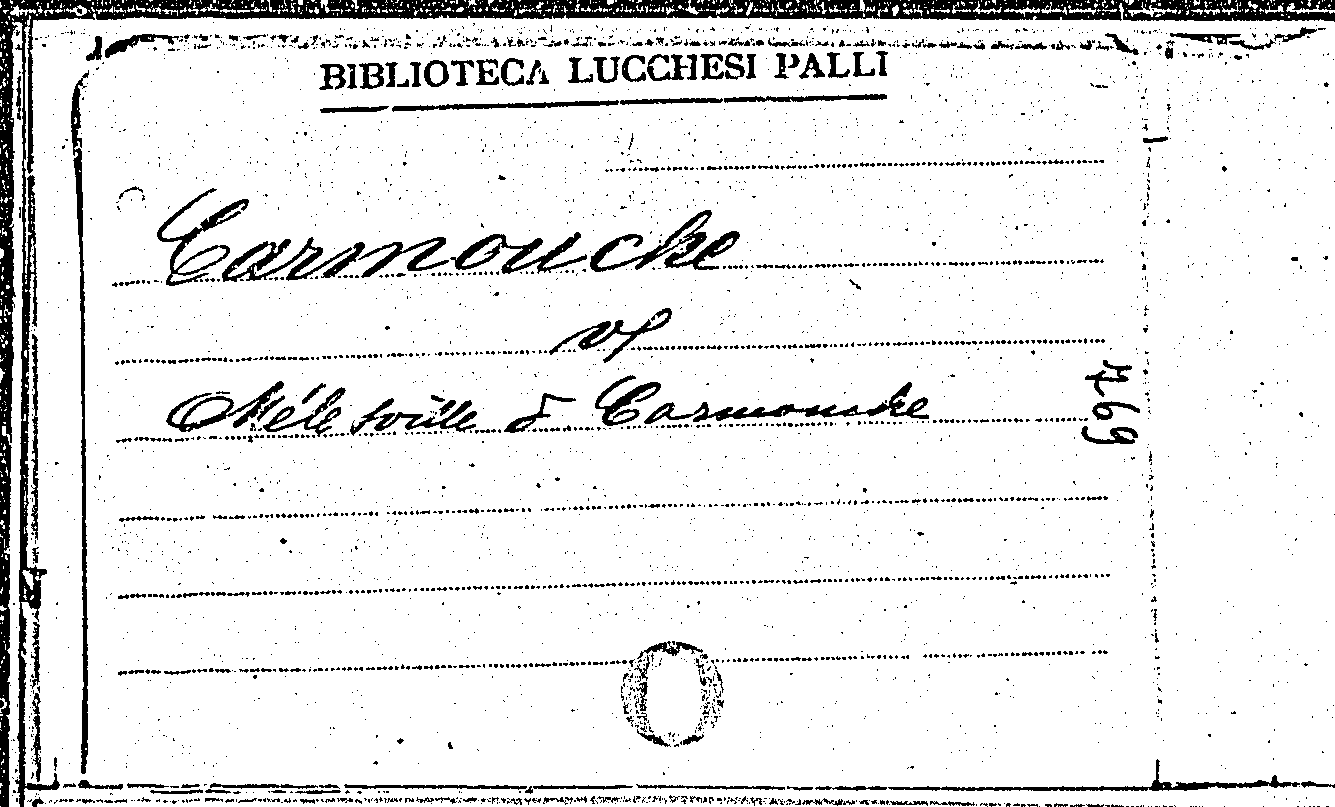 BIBLIOTECA LUCCHESI PALLI
Carmouche
vs
Mélesville & Carmouche
769